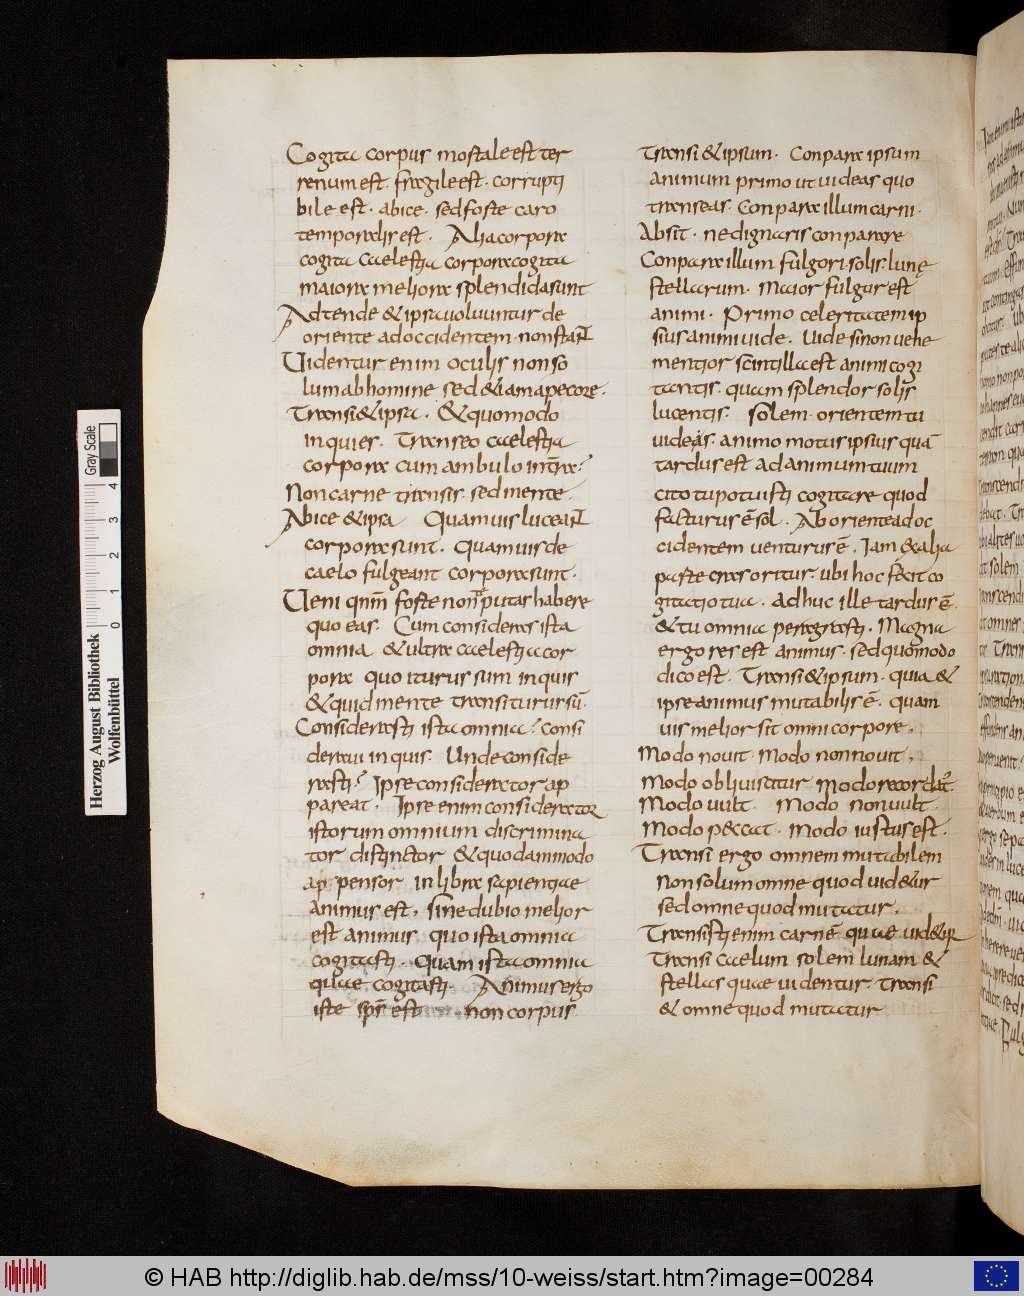 Cogita corpus mortale est ter
renum est. fragile est. corrupti
bile est. abice. sed forte caro
temporalis est. Alia corpora
cogita caelestia corpora cogita
maiora meliora splendida sunt
Adtende & ipsa uoluuntur de
oriente ad occidentem. non stant
Uidentur enim oculis non so
lum ab homine sed & iam a pecore.
Transi & ipsa. & quomodo
inquies. Transeo caelestia
corpora cum ambulo in terra?
Non carne transis. sed mente.
Abice & ipsa Quamuis luceant
corpora sunt. Quamuis de
caelo fulgeant corpora sunt.
Ueni qnm forte non putas habere
quo eas. Cum consideras ista
omnia & ultra caelestia cor
pora quo iturus sum inquis
& quid mente transiturus sū.
Considerasti ista omnia? consi
deraui inquis. Unde conside
rasti? Ipse considerator ap
pareat. Ipse enim considerator
istorum omnium discrimina
tor distinctor & quodammodo
appensor in libra sapientiae
animus est. sine dubio melior
est animus quo ista omnia
cogitasti. Quam ista omnia
quae cogitasti. Animus ergo
iste sps est non corpus
Transi & ipsum. Conpara ipsum
animum primo ut uideas quo
transeas. Conpara illum carni.
Absit. ne digneris conparare
Conpara illum fulgori solis. lunę
stellarum. Maior fulgor est
animi. Primo celeritatem ip
sius animi uide. Uide si non uehe
mentior scintilla est animi cogi
tantis. quam splendor solis
lucentis. solem orientem tu
uideas. animo motus ipsius quā
tardus est ad animum tuum
cito tu potuisti cogitare quod
facturus ē sol. Ab oriente ad oc
cidentem uenturus ē. Iam ex alia
parte cras oritur. ubi hoc fecit co
gitatio tua. adhuc ille tardus ē
& tu omnia peragrasti. Magna
ergo res est animus. sed quomodo
dico est. Transi & ipsum. quia &
ipse animus mutabilis ē. quam
uis melior sit omni corpore.
Modo nouit modo non nouit.
Modo obliuiscitur modo recordat.
Modo uult. Modo non uult.
Modo peccat. modo iustus est.
Transi ergo omnem mutabilem
non solum omne quod uid&ur
sed omne quod mutatur.
Transisti enim carnē quae uid&ur
Transi caelum solem lunam &
stellas quae uidentur transi
& omne quod mutatur
Herzog August Bibliothek
Wolfenbüttel
0 1 2 3 4
Gray Scale
© HAB http://diglib.hab.de/mss/10-weiss/start.htm?image=00284